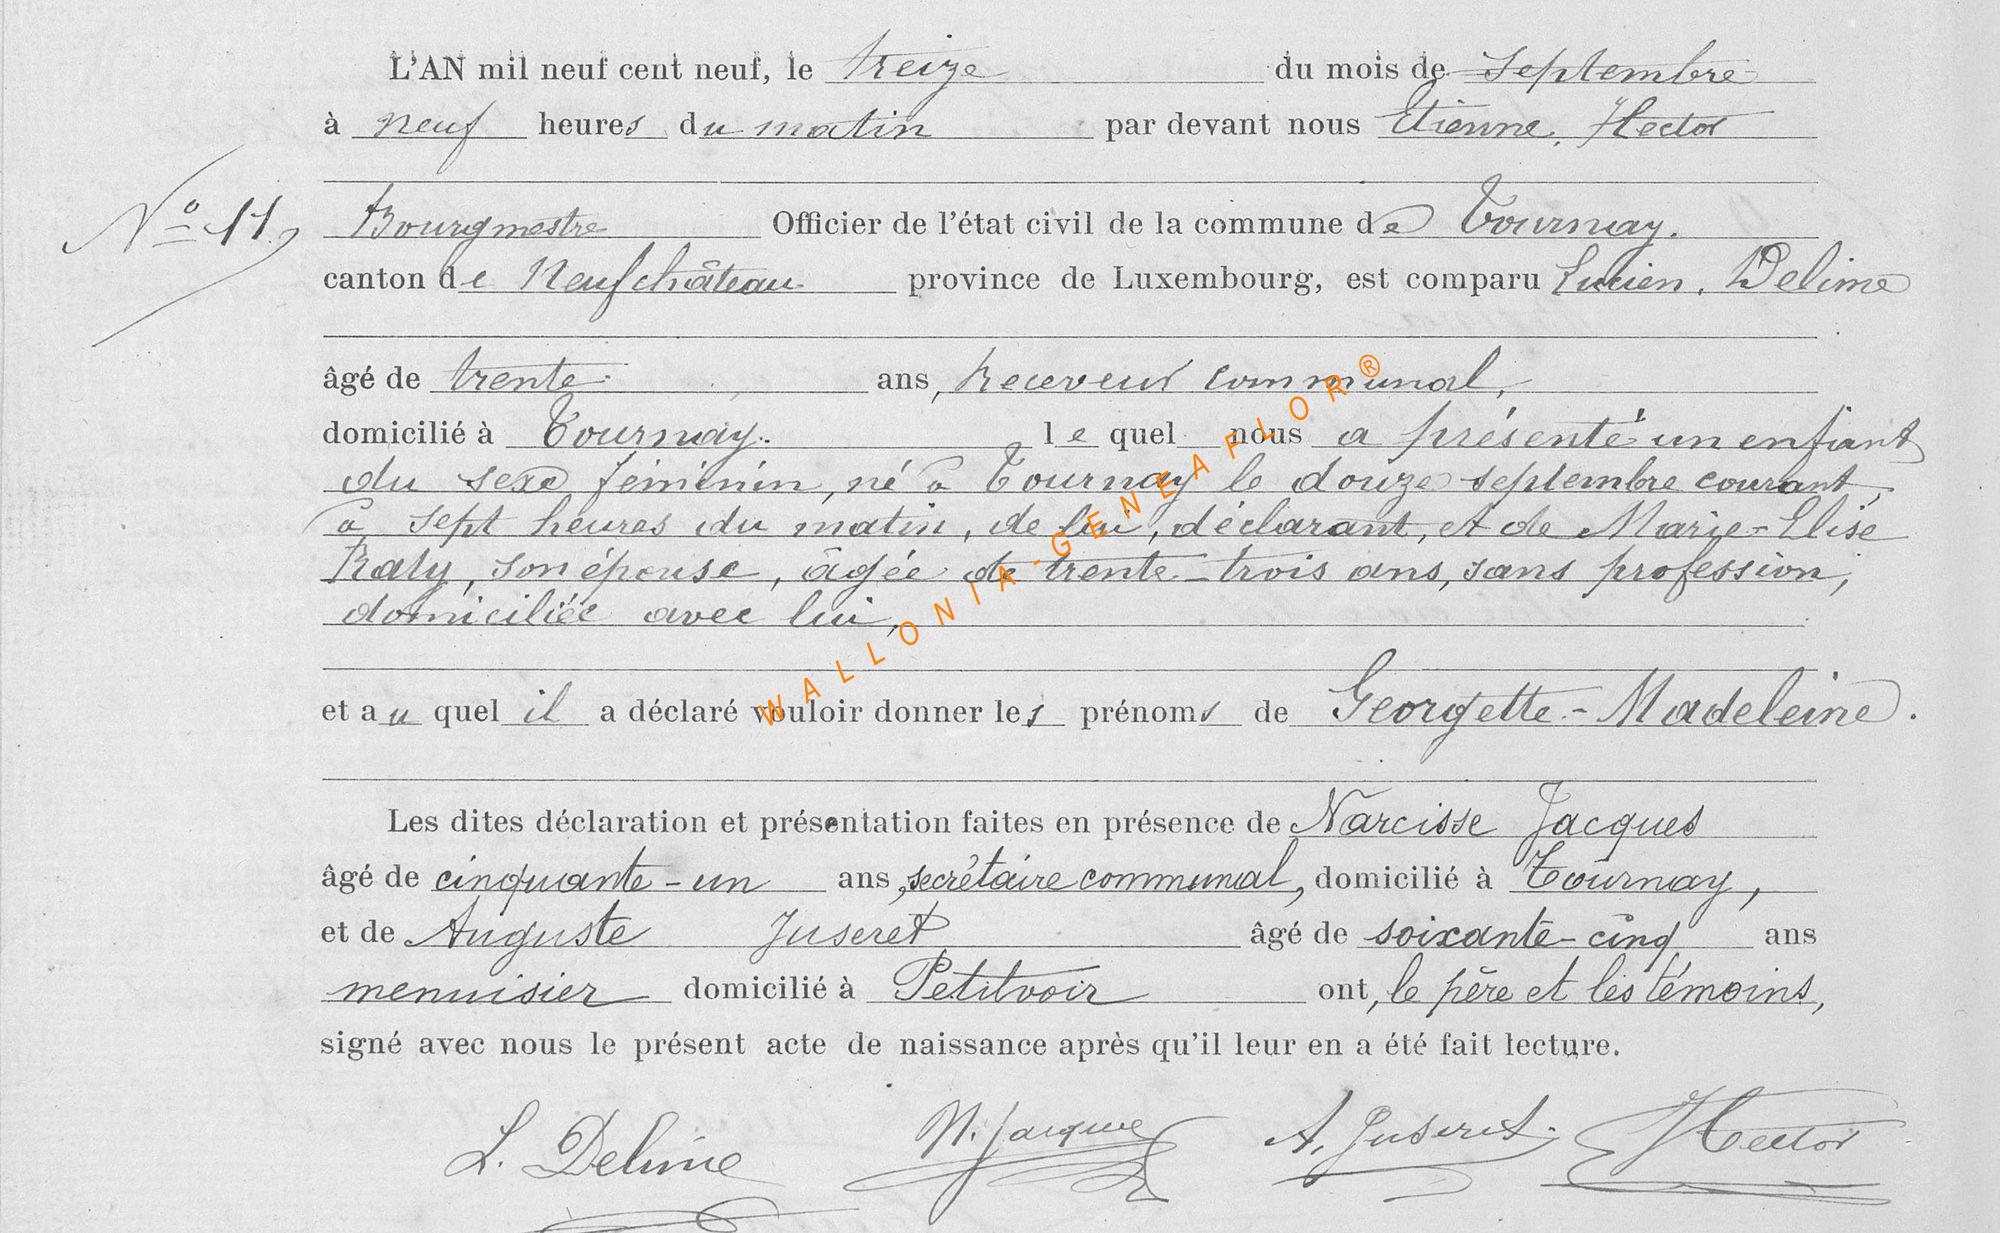 L'AN mil neuf cent neuf, le treize du mois de septembre
à neuf heures du matin par devant nous Etienne, Hector
N° 11, Bourgmestre Officier de l'état civil de la commune de Tournay.
canton de Neufchâteau province de Luxembourg, est comparu Lucien, Delime
âgé de trente ans, Receveur communal,
domicilié à Tournay. le quel nous a présenté un enfant
du sexe féminin, né à Tournay le douze septembre courant,
à sept heures du matin, de lui, déclarant, et de Marie-Elise
Raty, son épouse, âgée de trente-trois ans, sans profession,
domiciliée avec lui,
et au quel il a déclaré vouloir donner les prénoms de Georgette-Madeleine.
Les dites déclaration et présentation faites en présence de Narcisse Jacques
âgé de cinquante-un ans, secrétaire communal, domicilié à Tournay,
et de Auguste Juseret âgé de soixante-cinq ans
menuisier domicilié à Petitvoir ont, le père et les témoins,
signé avec nous le présent acte de naissance après qu'il leur en a été fait lecture.
L. Delime N. Jacques A. Juseret. Hector
WALLONIA-GENEAFLOR®